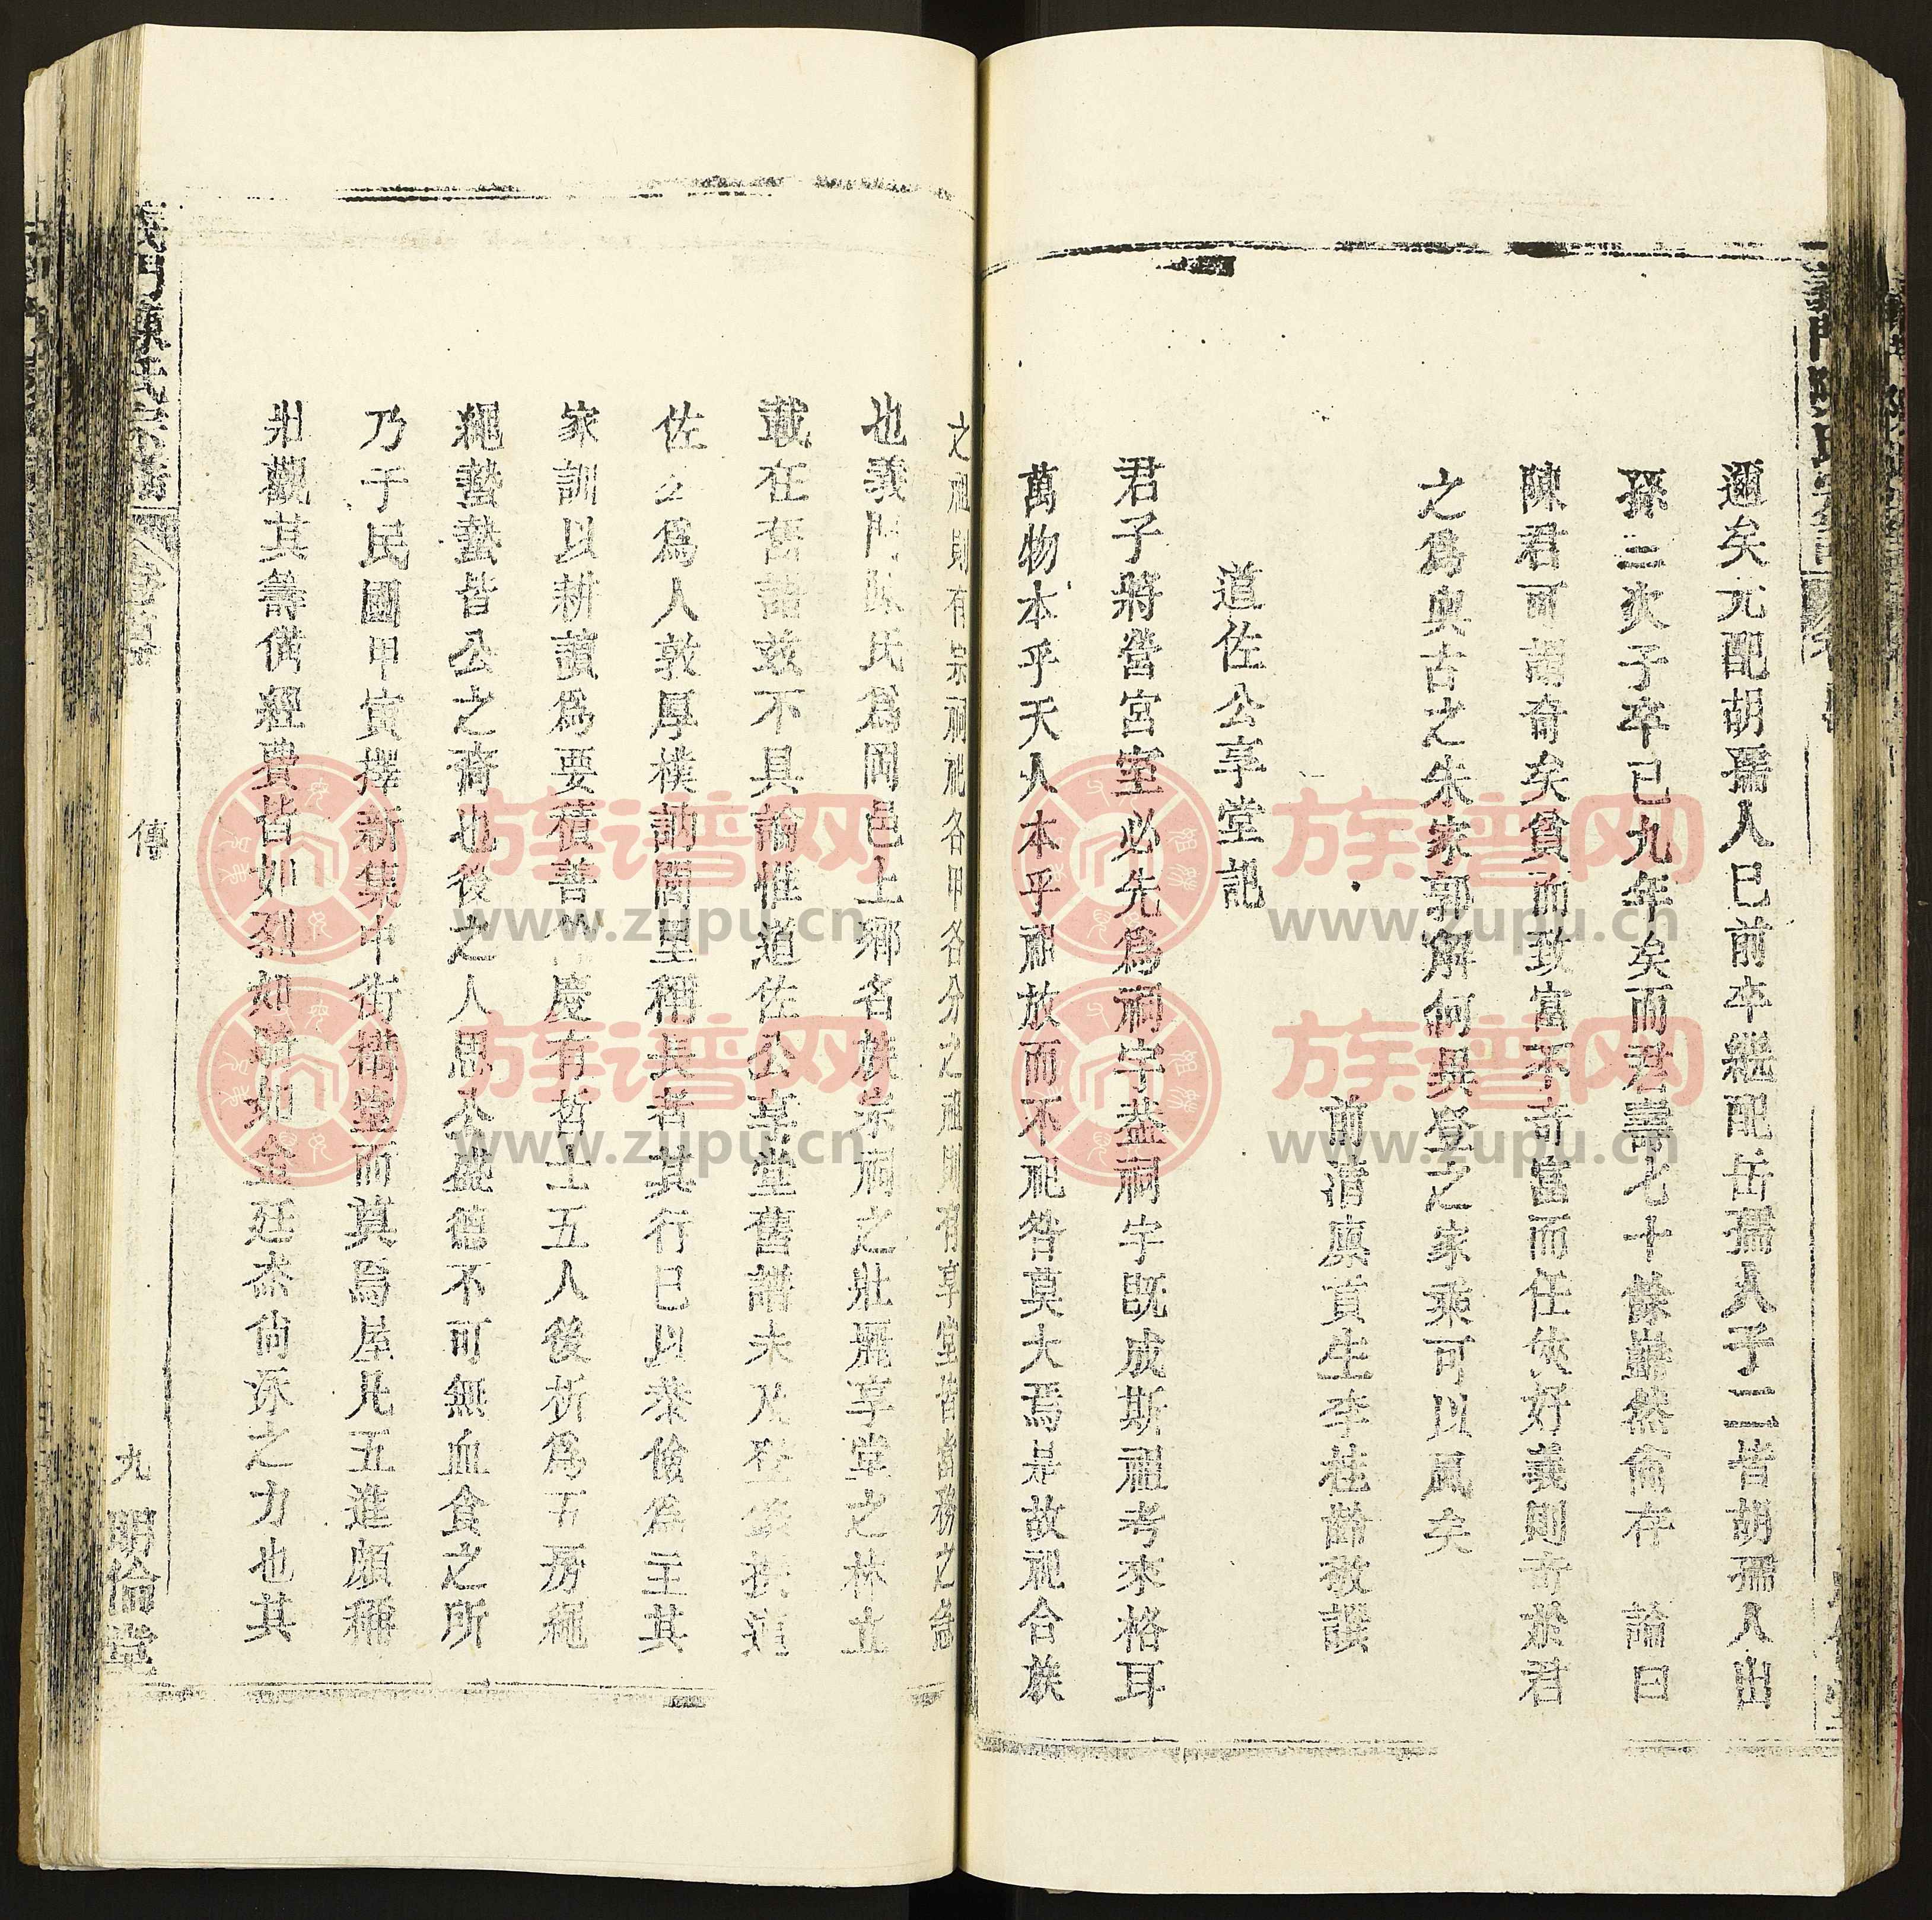 邇矣元配胡孺人已前卒繼配岳孺人子二皆胡孺人出
孫三次子卒已九年矣而君壽七十餘巋然尙存　論曰
陳君可謂奇矣貧而致富不奇富而任俠好義則奇於君
之爲與古之朱家郭解何異登之家乘可以風矣
前清廩貢生李桂齡敬譔
道佐公享堂記
君子將營宮室必先爲祠宇蓋祠宇既成斯祖考來格耳
萬物本乎天人本乎祖故而不祀咎莫大焉是故祀合族
之祖則有宗祠祀各甲各分之祖則有享堂皆當務之急
也義門陳氏爲岡邑上鄉名族宗祠之壯麗享堂之林立
載在舊譜茲不具論惟道佐公享堂舊譜未及登
佐公爲人敦厚樸訥閭里稱長者其行已以恭儉爲主其
家訓以耕讀爲要積善 慶有哲士五人後析爲五房繩
繩蟄蟄皆公之裔也後之人思公盛德不可無血食之所
乃于民國甲寅擇新集中街構堂而奠焉屋凡五進頗稱
壯觀其籌備經費皆如烈如 如金廷杰尙泳之力也其
義門陳氏宗譜
傳
九
明倫堂
義門陳氏宗譜
族谱网
www.zupu.cn
族谱网
www.zupu.cn
族谱网
www.zupu.cn
族谱网
www.zupu.cn